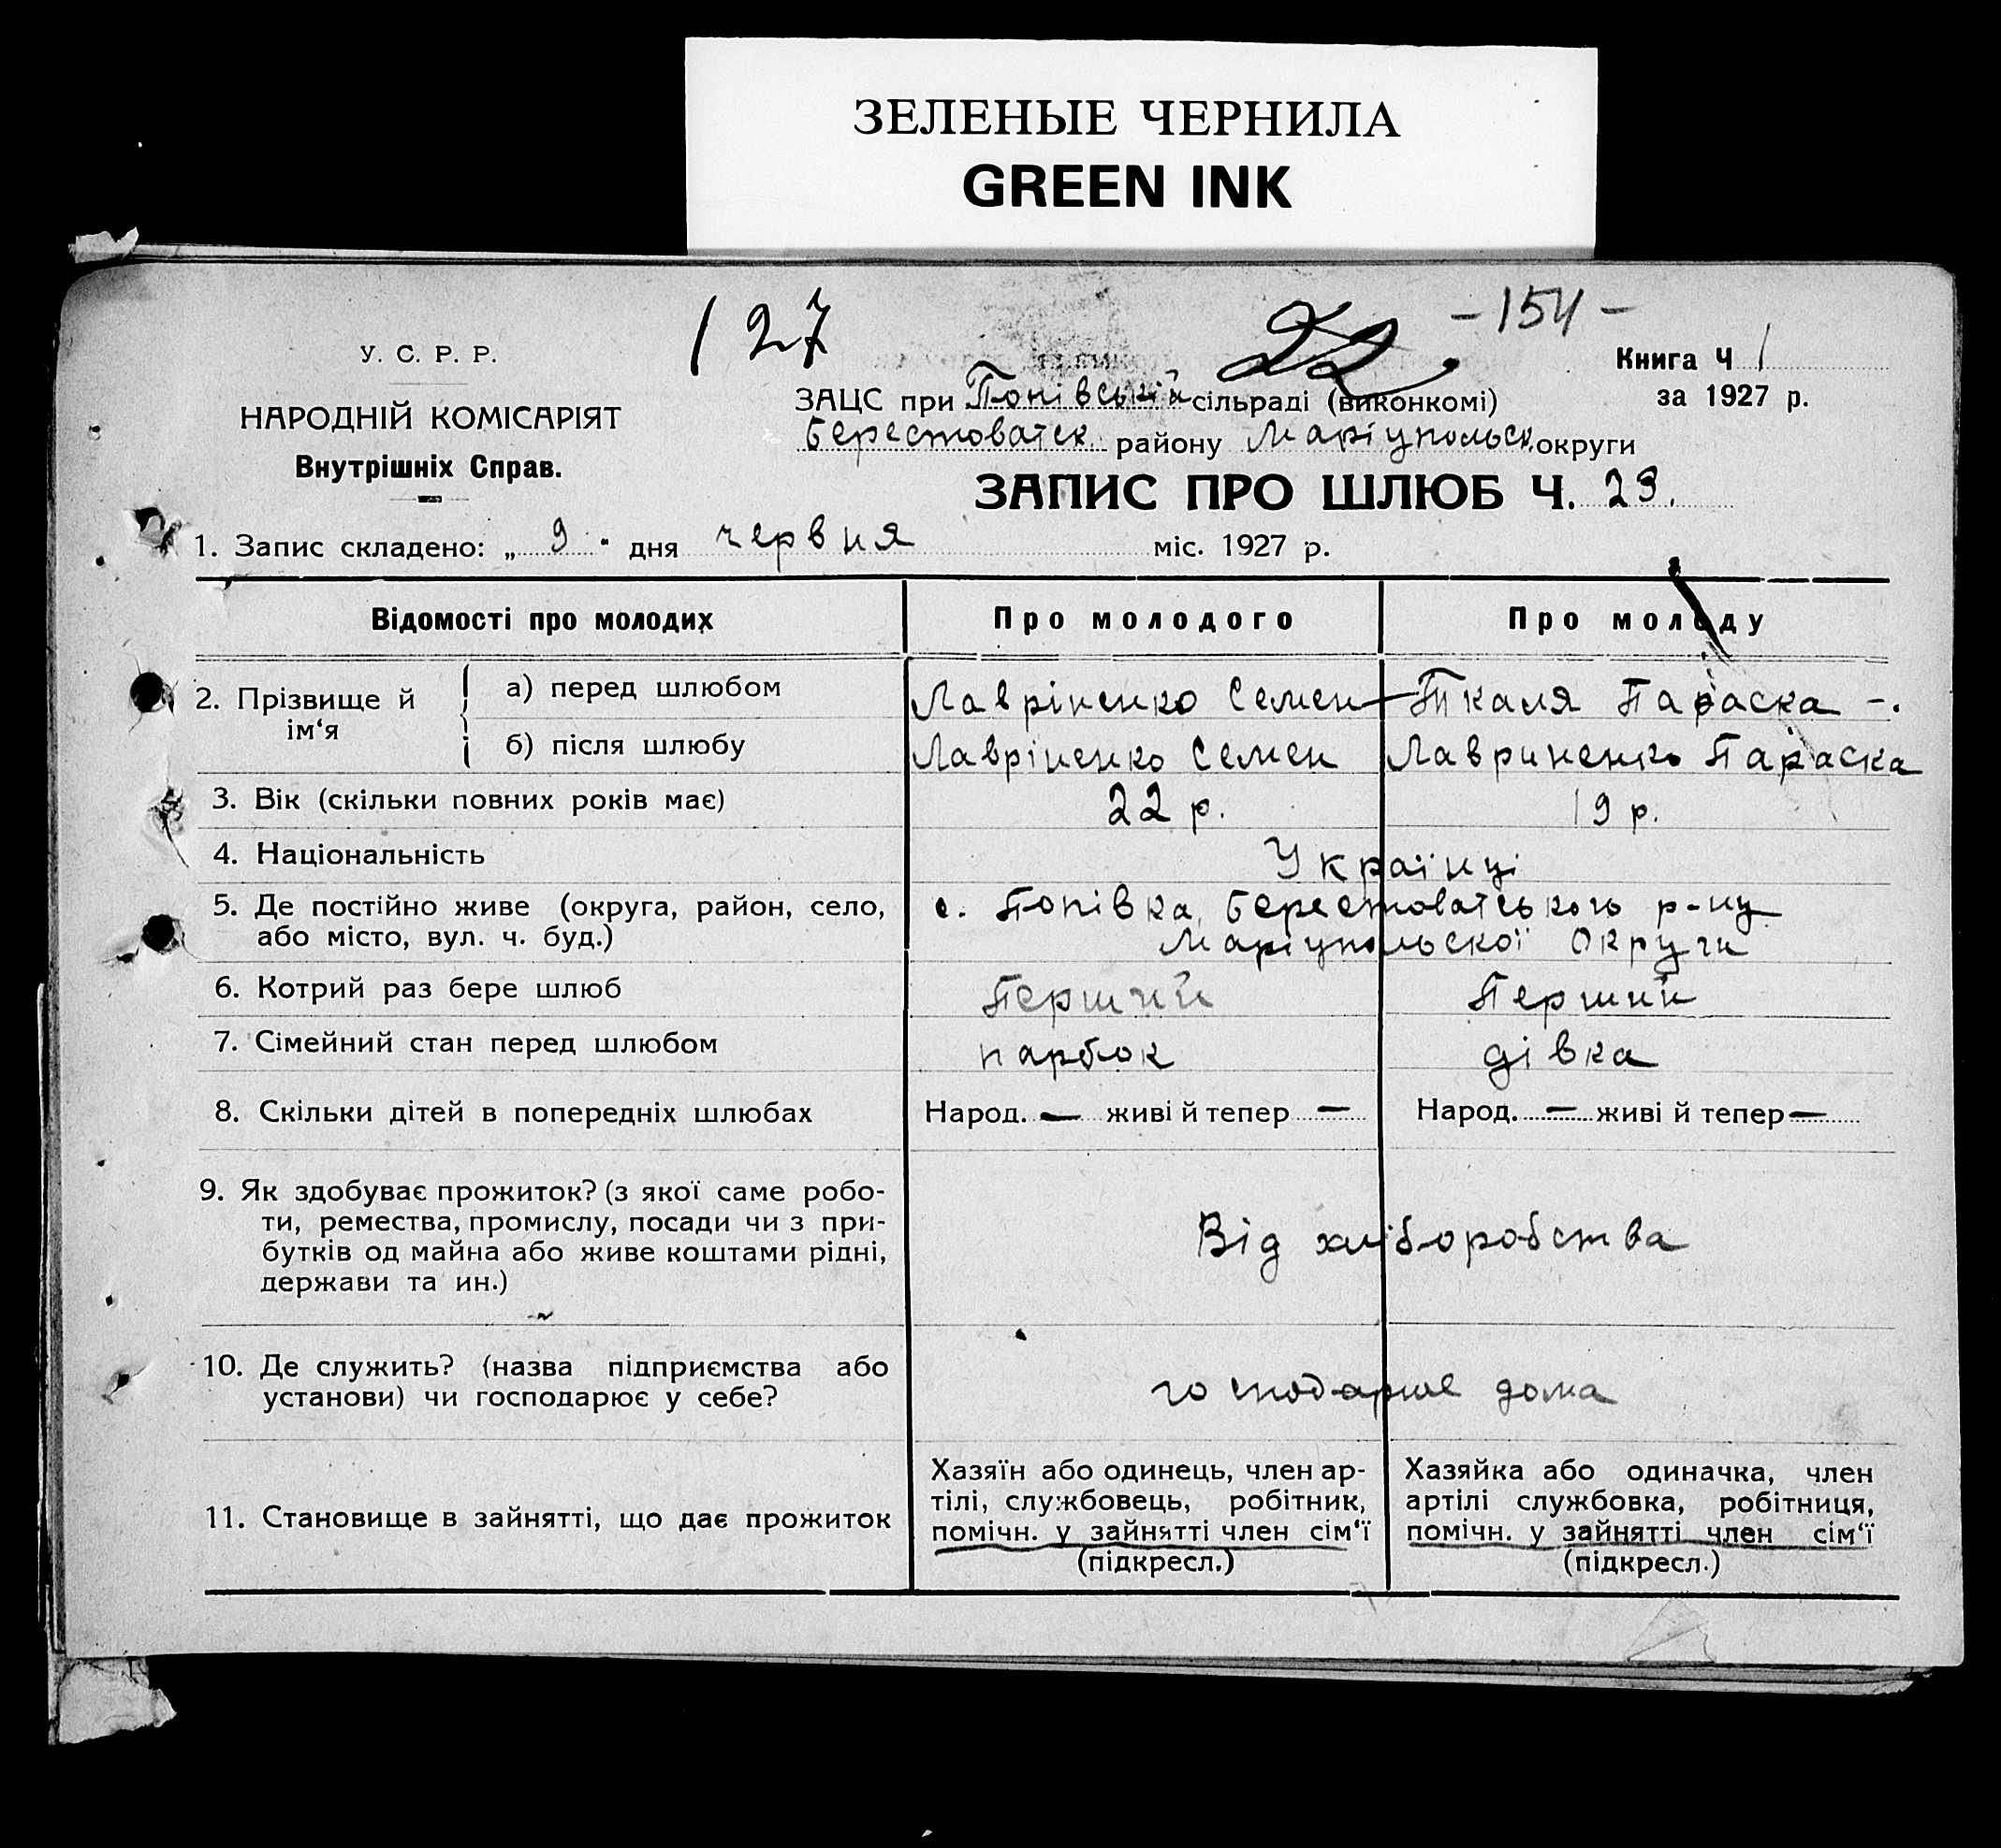 ЗЕЛЕНЫЕ ЧЕРНИЛА
GREEN INK
127
22.
-154-
У. С. Р. Р.
НАРОДНІЙ КОМІСАРІЯТ
Внутрішніх Справ.
Книга Ч 1
за 1927 р.
ЗАЦС при Попівській сільраді (виконкомі)
Берестоватск. району Маріупольськ. округи
ЗАПИС ПРО ШЛЮБ Ч. 23.
1. Запис складено: „ 9 " дня червня міс. 1927 р.
Відомості про молодих Про молодого Про молоду
2. Прізвище й ім‘я
а) перед шлюбом Лавріненко Семен Ткаля Параска -.
б) після шлюбу Лавріненко Семен Лавриненко Параска
3. Вік (скільки повних років має) 22 р. 19 р.
4. Національність Українці
5. Де постійно живе (округа, район, село, с. Попівка, Берестоватського р-ну
або місто, вул. ч. буд.) Маріупольскої Округи
6. Котрий раз бере шлюб Перший Перший
7. Сімейний стан перед шлюбом парбок дівка
8. Скільки дітей в попередніх шлюбах Народ. — живі й тепер — Народ. — живі й тепер —
9. Як здобуває прожиток? (з якої саме робо-
ти, ремества, промислу, посади чи з при-
бутків од майна або живе коштами рідні,
держави та ин.)
Від хліборобства
10. Де служить? (назва підприємства або
установи) чи господарює у себе?
господарює дома
11. Становище в зайнятті, що дає прожиток
Хазяїн або одинець, член ар-
тілі, службовець, робітник,
помічн. у зайнятті член сім‘ї
(підкресл.)
Хазяйка або одиначка, член
артілі службовка, робітниця,
помічн. у зайнятті член сім‘ї
(підкресл.)